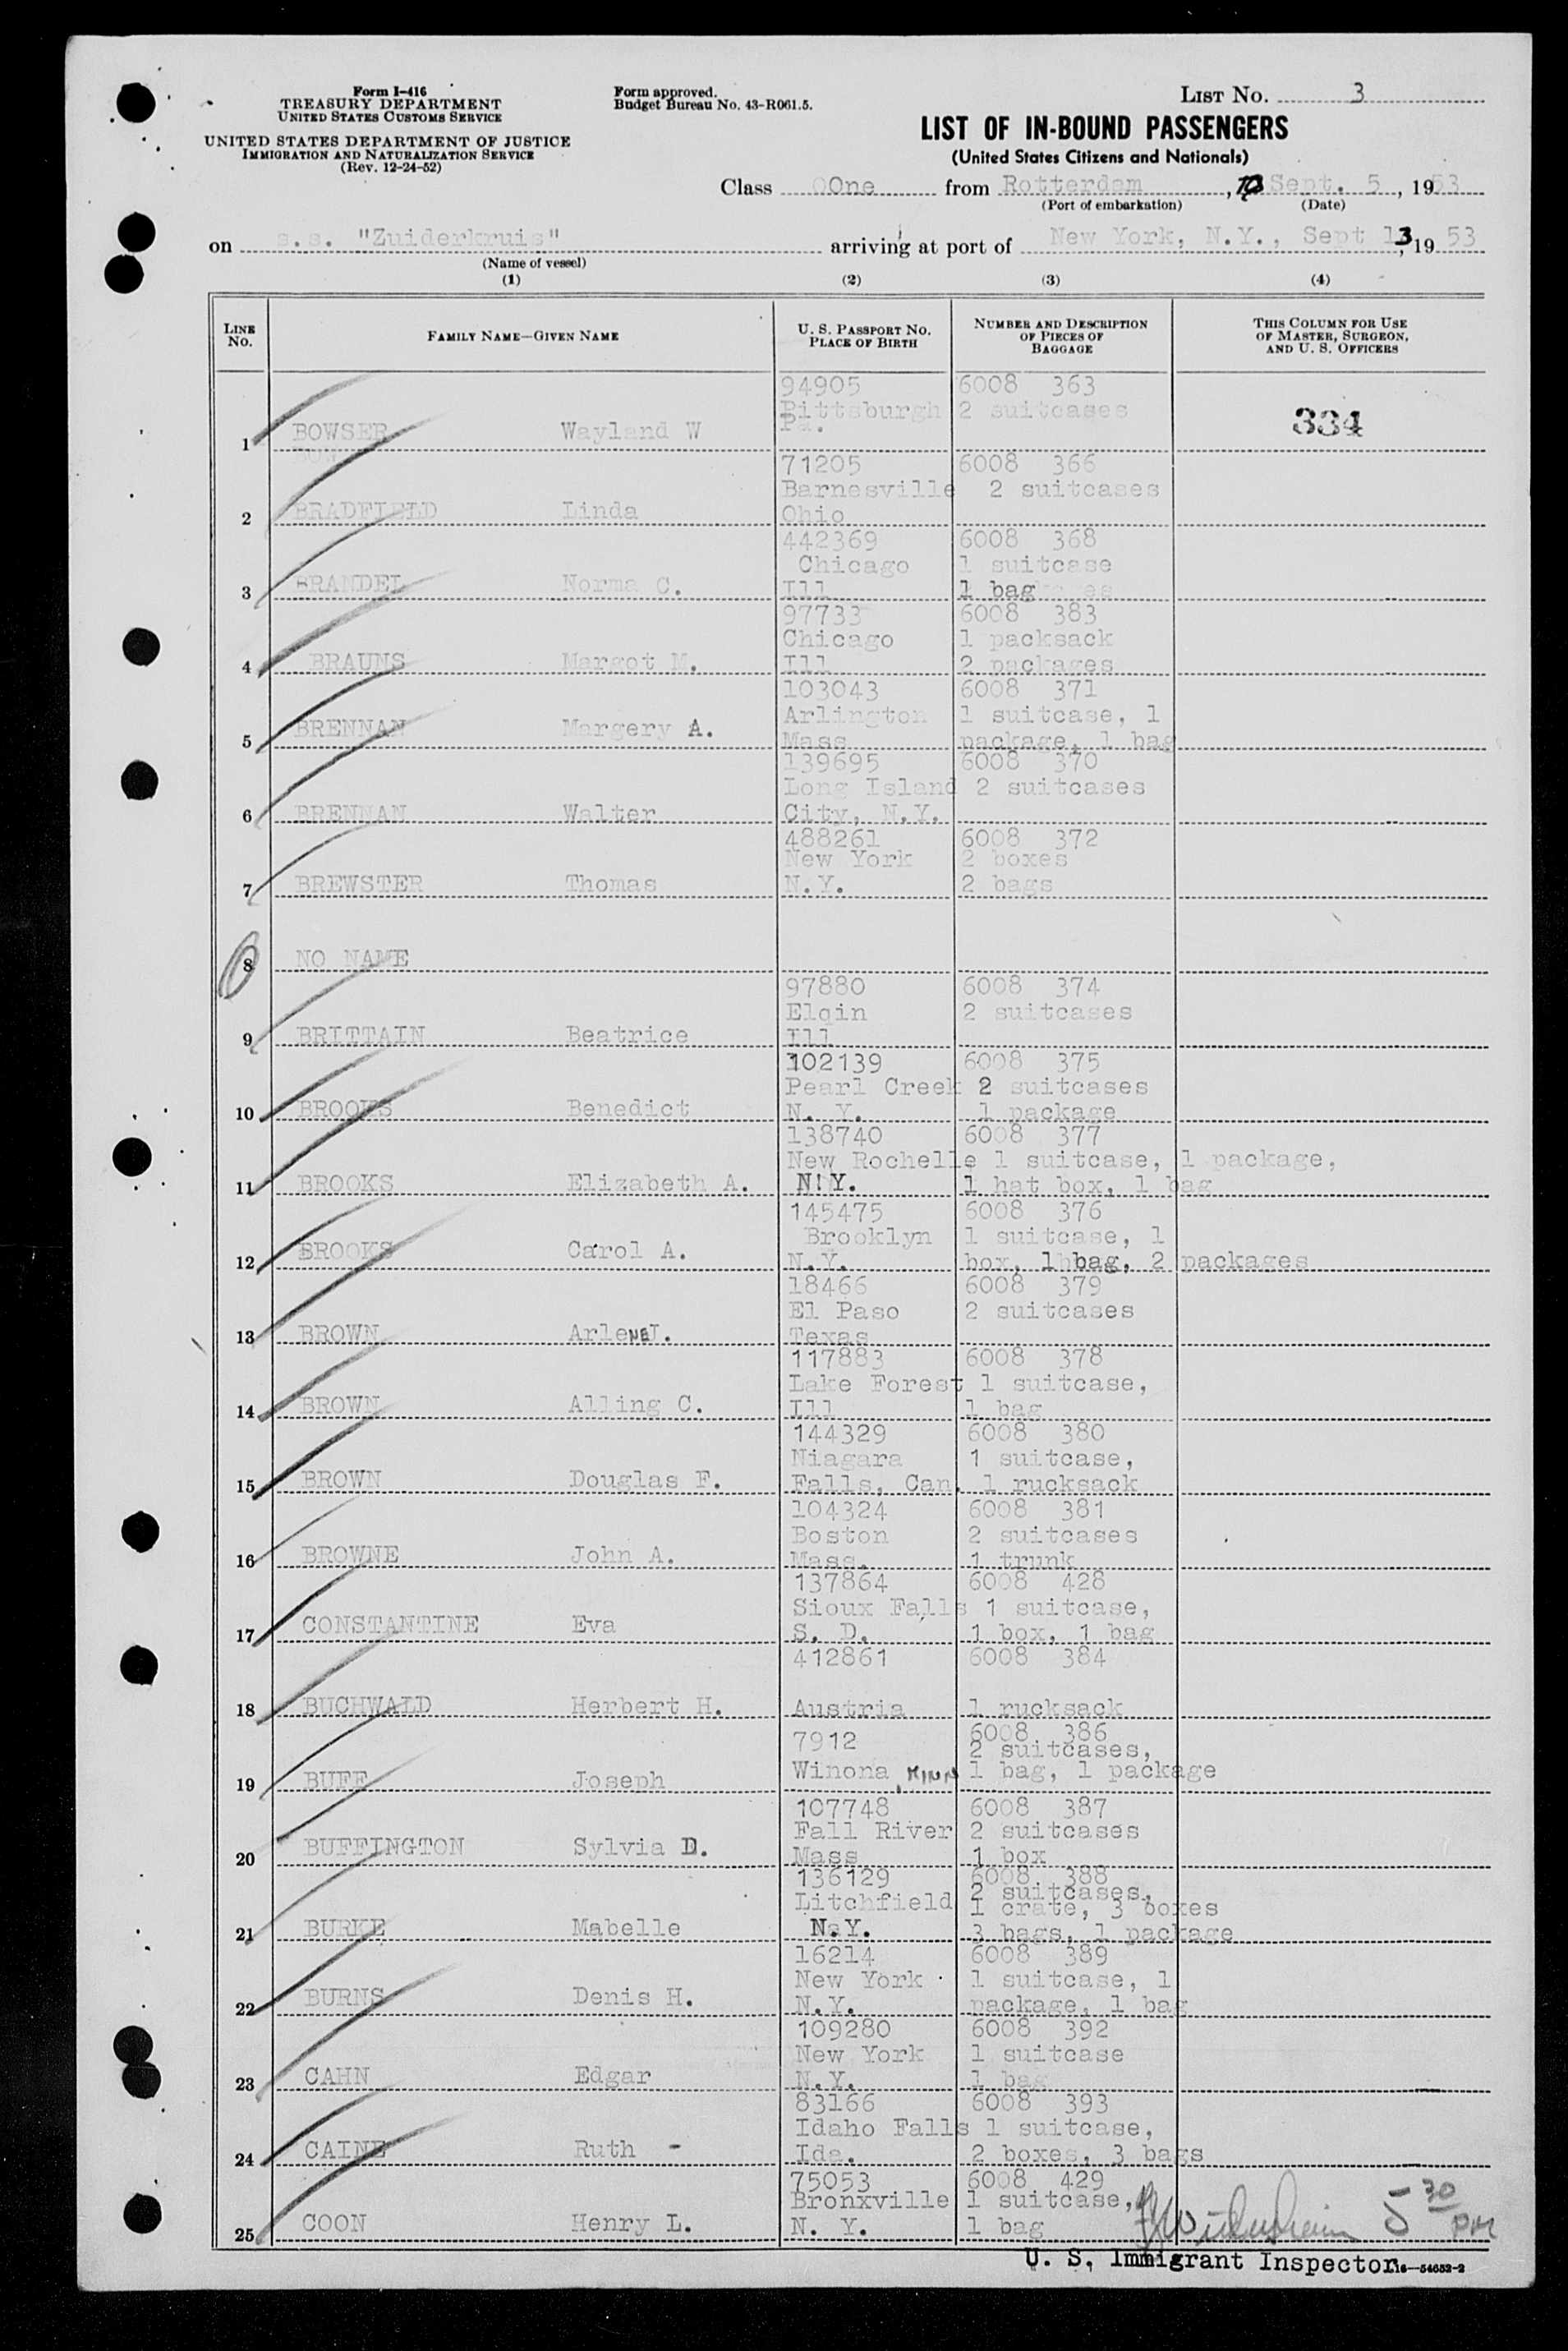 Form I-416
TREASURY DEPARTMENT
UNITED STATES CUSTOMS SERVICE
UNITED STATES DEPARTMENT OF JUSTICE
IMMIGRATION AND NATURALIZATION SERVICE
(Rev. 12-24-52)
Form approved.
Budget Bureau No. 43-R061.5.
LIST NO. 3
LIST OF IN-BOUND PASSENGERS
(United States Citizens and Nationals)
Class One from Rotterdam, Sept. 5, 1953
(Port of embarkation) (Date)
on s.s. "Zuiderkruis" arriving at port of New York, N.Y., Sept 13, 1953
(Name of vessel)
(1) (2) (3) (4)
LINE NO.
FAMILY NAME—GIVEN NAME
U. S. PASSPORT NO.
PLACE OF BIRTH
NUMBER AND DESCRIPTION
OF PIECES OF
BAGGAGE
THIS COLUMN FOR USE
OF MASTER, SURGEON,
AND U. S. OFFICERS
94905 6008 363
Pittsburgh 2 suitcases 334
1 BOWSER Wayland W Pa.
71205 6008 366
Barnesville 2 suitcases
2 BRADFIELD Linda Ohio
442369 6008 368
Chicago 1 suitcase
3 BRANDEL Norma C. Ill 1 bag
97733 6008 383
Chicago 1 packsack
4 BRAUNS Margot M. Ill 2 packages
103043 6008 371
Arlington 1 suitcase, 1
5 BRENNAN Margery A. Mass package, 1 bag
139695 6008 370
Long Island 2 suitcases
6 BRENNAN Walter City, N.Y.
488261 6008 372
New York 2 boxes
7 BREWSTER Thomas N.Y. 2 bags
8 NO NAME
97880 6008 374
Elgin 2 suitcases
9 BRITTAIN Beatrice Ill
102139 6008 375
Pearl Creek 2 suitcases
10 BROOKS Benedict N. Y. 1 package
138740 6008 377
New Rochelle 1 suitcase, 1 package,
11 BROOKS Elizabeth A. N.Y. 1 hat box, 1 bag
145475 6008 376
Brooklyn 1 suitcase, 1
12 BROOKS Carol A. N.Y. box, 1 bag, 2 packages
18466 6008 379
El Paso 2 suitcases
13 BROWN Arlene J. Texas
117883 6008 378
Lake Forest 1 suitcase,
14 BROWN Alling C. Ill 1 bag
144329 6008 380
Niagara 1 suitcase,
15 BROWN Douglas F. Falls, Can. 1 rucksack
104324 6008 381
Boston 2 suitcases
16 BROWNE John A. Mass. 1 trunk
137864 6008 428
Sioux Falls 1 suitcase,
17 CONSTANTINE Eva S. D. 1 box, 1 bag
412861 6008 384
18 BUCHWALD Herbert H. Austria 1 rucksack
7912 6008 386
2 suitcases,
19 BUFE Joseph Winona, MINN 1 bag, 1 package
107748 6008 387
Fall River 2 suitcases
20 BUFFINGTON Sylvia D. Mass 1 box
136129 6008 388
2 suitcases,
Litchfield 1 crate, 3 boxes
21 BURKE Mabelle N.Y. 3 bags, 1 package
16214 6008 389
New York 1 suitcase, 1
22 BURNS Denis H. N.Y. package, 1 bag
109280 6008 392
New York 1 suitcase
23 CAHN Edgar N.Y. 1 bag
83166 6008 393
Idaho Falls 1 suitcase,
24 CAINE Ruth - Ida. 2 boxes, 3 bags
75053 6008 429
Bronxville 1 suitcase,
25 COON Henry L. N. Y. 1 bag 5 30 PM
U. S. Immigrant Inspector
16—54652-2